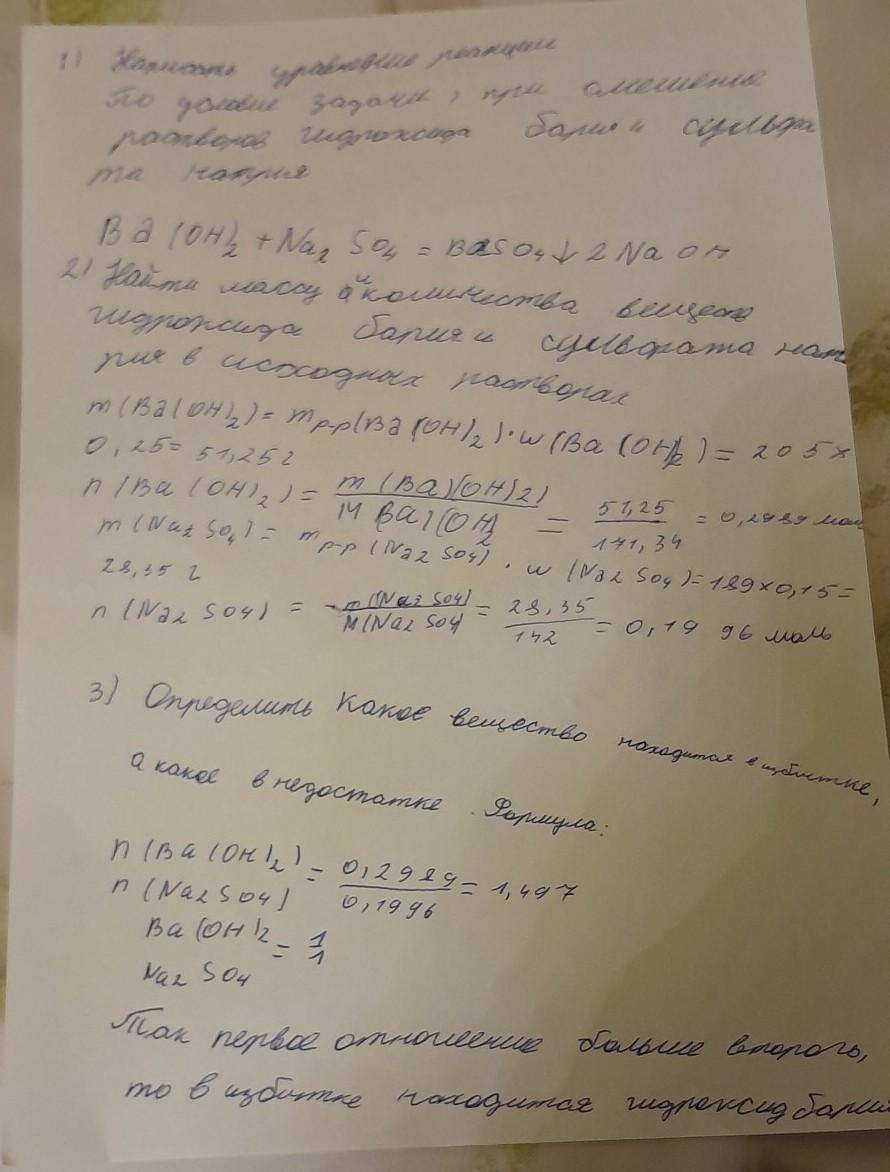 1) Написать уравнение реакции
По условие задачи, при смешение
растворов гидроксида бария и сульфа
та натрия
Ba(OH)2 + Na2SO4 = BaSO4↓ 2NaOH
2) Найти массу и количества веществ
гидроксида бария и сульфата нат
рия в исходных растворах
m(Ba(OH)2) = mр-р(Ba(OH)2) · w(Ba(OH)2) = 205 ×
0,25 = 51,25 г
n(Ba(OH)2) = m(Ba)(OH)2) / M Ba)(OH)2 = 51,25 / 171,34 = 0,2989 мол
m(Na2SO4) = mр-р(Na2SO4) · w(Na2SO4) = 189×0,15 =
28,35 г
n(Na2SO4) = m(Na2SO4) / M(Na2SO4) = 28,35 / 142 = 0,1996 моль
3) Определить какое вещество находится в избытке,
а какое в недостатке. Формула:
n(Ba(OH)2) / n(Na2SO4) = 0,2989 / 0,1996 = 1,497
Ba(OH)2 / Na2SO4 = 1/1
Так первое отношение больше второго,
то в избытке находится гидроксид бария